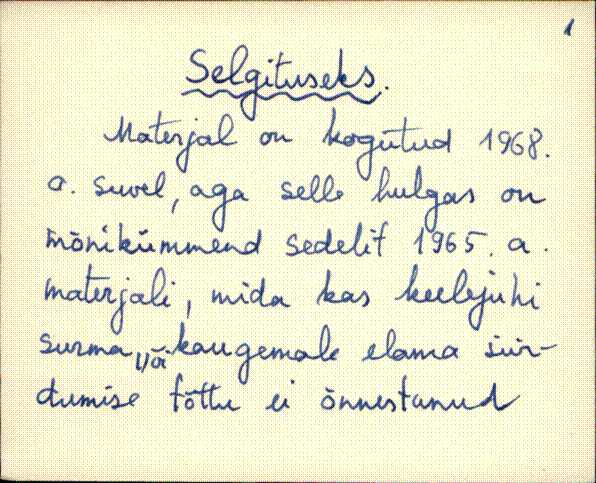 1
Selgituseks.
Materjal on kogutud 1968.
a. suvel, aga selle hulgas on
mõnikümmend sedelit 1965. a.
materjali, mida kas keelejuhi
surma, või kaugemale elama siir-
dumise tõttu ei õnnestunud